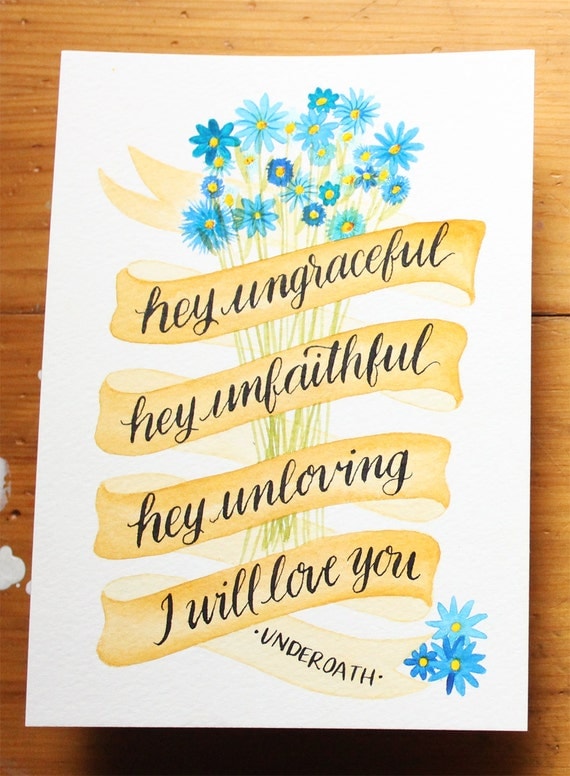 hey ungraceful
hey unfaithful
hey unloving
I will love you
·UNDEROATH·